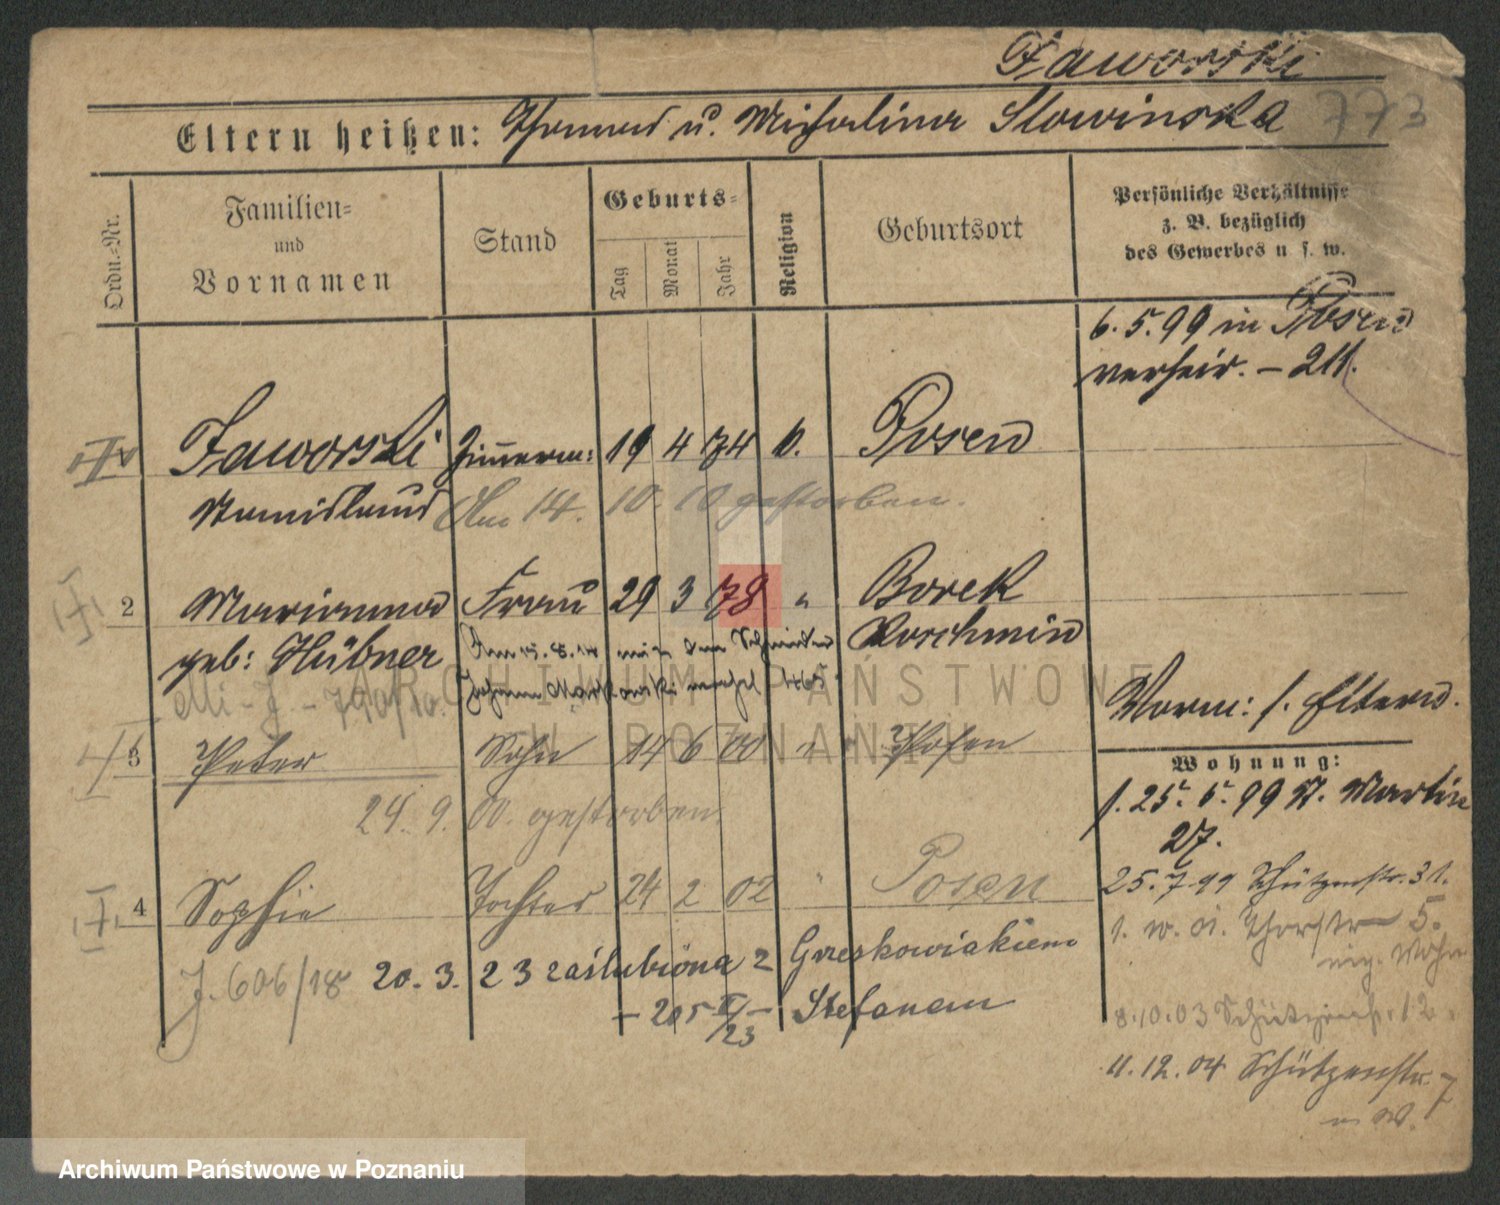 Jaworski
Eltern heißen: Thomas u. Michalina Slowinska 773
Ordn.-Nr.
Familien=
und
Vornamen
Stand
Geburts=
Tag
Monat
Jahr
Religion
Geburtsort
Persönliche Verhältnisse
z. B. bezüglich
des Gewerbes u. s. w.
6. 5. 99 in Posen
verheir. – 211.
Jaworski Zimmerm: 19 4 74 k. Posen
Stanislaus Am 14. 10. 10 gestorben.
2 Marianna Frau 29 3 78 " Borek
geb: Hübner Koschmin
Am 15. 8. 14 mit dem
Johann
J – 790/10.
Verm: s. Eltern.
3 Peter Sohn 14 6 00 " Posen
24. 9. 00. gestorben.
Wohnung:
1. 25. 5. 99 St. Martin
27.
25. 7. 99 Schützenstr. 31.
4 Sophie Tochter 24 2 02 " Posen
1. 5.
J. 606/18 20. 3. 23 zaślubiona z Grzeskowiakiem
– 205 II/23 – Stefanem
8. 10. 03 Schützenstr. 12.
11. 12. 04 Schützenstr. 7
ARCHIWUM PAŃSTWOWE
W POZNANIU
Archiwum Państwowe w Poznaniu